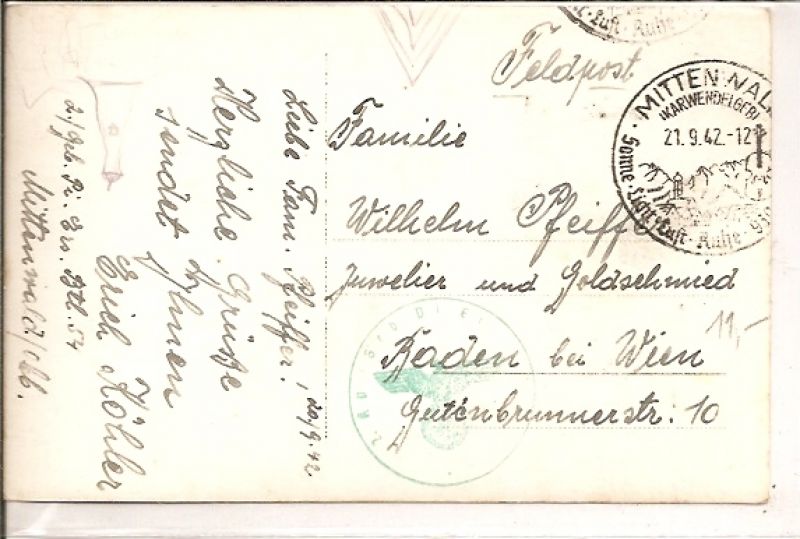 Feldpost
Familie
Wilhelm Pfeiffer
Juwelier und Goldschmied
Baden bei Wien
Gutenbrunnerstr: 10
11,-
MITTENWAL
(KARWENDELGEB)
21.9.42.-12
Sonne · Licht · Luft · Ruhe · 930
Luft · Ruhe
20/9.42
Liebe Fam. Pfeiffer!
Herzliche Grüße
sendet Ihnen
Erich Köhler
2./Geb. Pi. Ers. Btl. 54
Mittenwald/Obb.